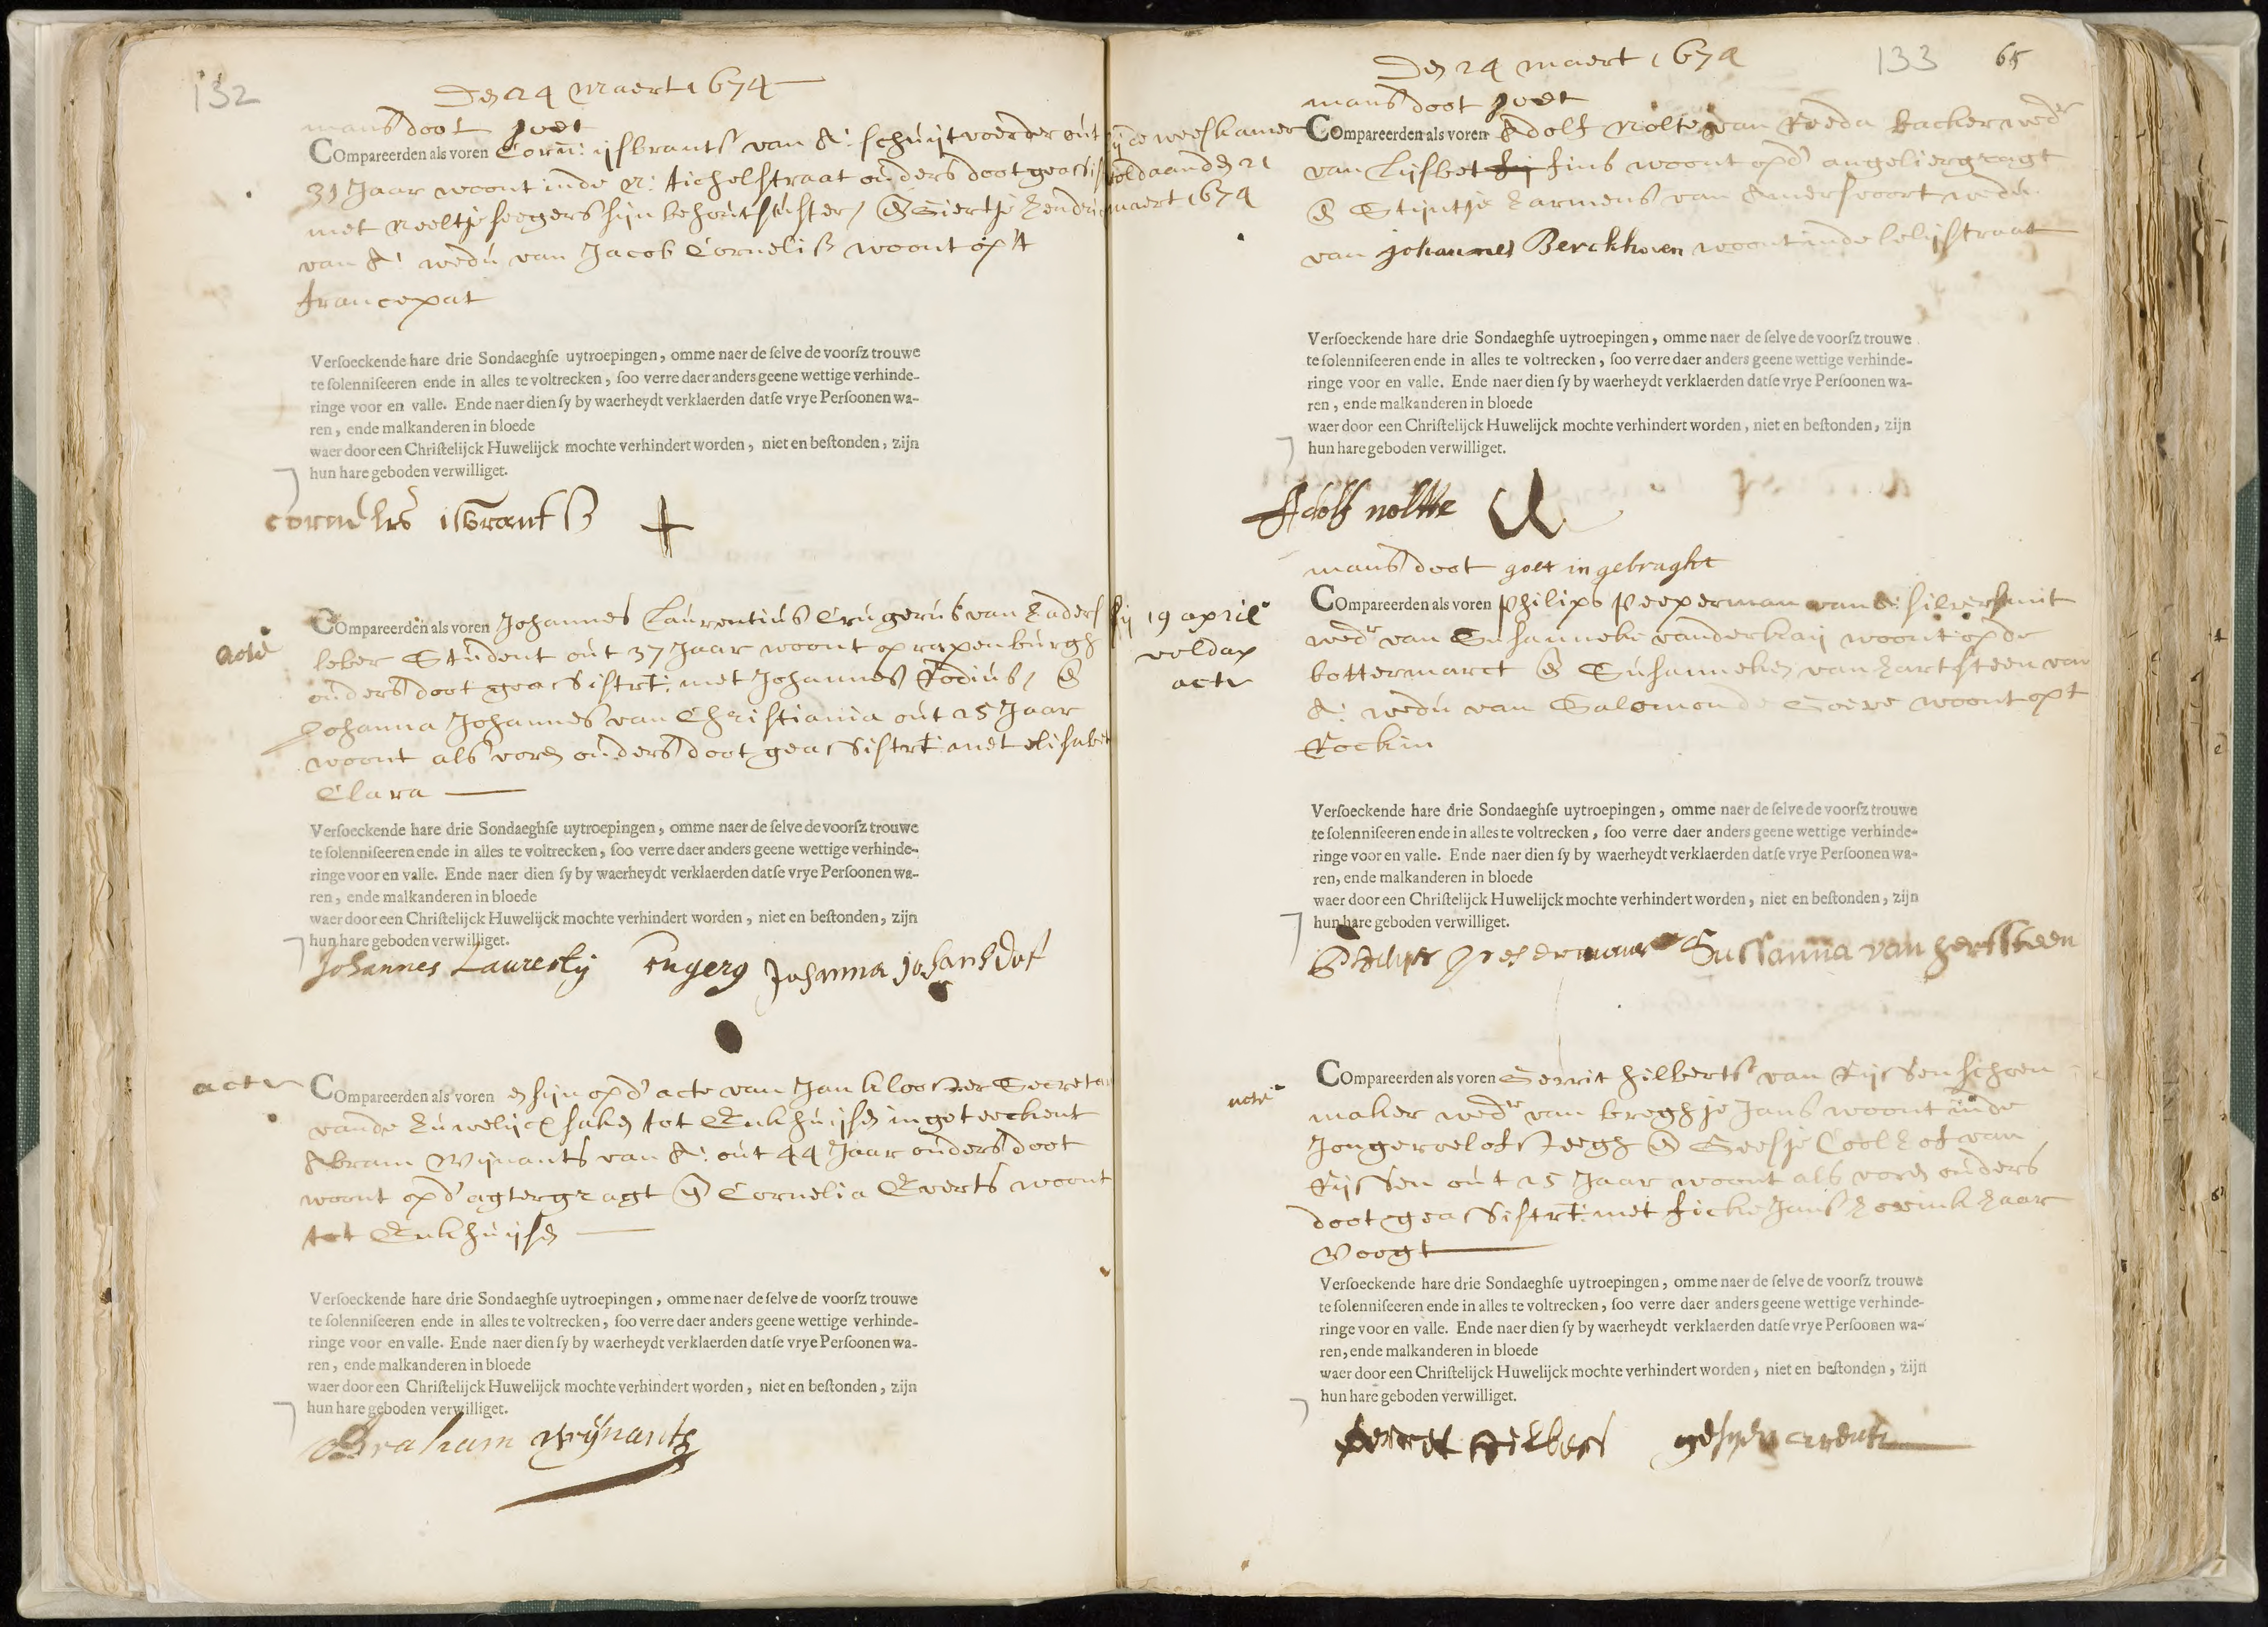 132
Den 24 Maert 1674
mans doot goet
COmpareerden als voren Corn: ijsbrants van A: schuijtvoerder out
31 Jaar woont inde N: tichelstraat ouders doot geassist
met Neeltje seegers sijn behoutsuster, en Giertje hendri
van A: wedu van Jacob Cornelisz woont op't
francepat
Verſoeckende hare drie Sondaeghſe uytroepingen, omme naer de ſelve de voorſz trouwe
te ſolenniſeeren ende in alles te voltrecken, ſoo verre daer anders geene wettige verhinde-
ringe voor en valle. Ende naer dien ſy by waerheydt verklaerden datſe vrye Perſoonen wa-
ren, ende malkanderen in bloede
waer door een Chriſtelijck Huwelijck mochte verhindert worden, niet en beſtonden, zijn
hun hare geboden verwilliget.
cornelis isbrantsz +
acte
COmpareerden als voren Johannes Laurentius Crugerus van haders
leber Student out 37 Jaar woont op rapenburgh
ouders doot geassistrt: met Johannes Rodius, en
Johanna Johannes van Christiania out 25 Jaar
woont als voren ouders doot geassistrt: met elisabet
Clara
Verſoeckende hare drie Sondaeghſe uytroepingen, omme naer de ſelve de voorſz trouwe
te ſolenniſeeren ende in alles te voltrecken, ſoo verre daer anders geene wettige verhinde-
ringe voor en valle. Ende naer dien ſy by waerheydt verklaerden datſe vrye Perſoonen wa-
ren, ende malkanderen in bloede
waer door een Chriſtelijck Huwelijck mochte verhindert worden, niet en beſtonden, zijn
hun hare geboden verwilliget.
Johannes Laurentij Johanna johansdot
acte
COmpareerden als voren en sijn op d' acte van Jan klooster Secreta
vande huwelijcxsaken tot Enkhuijsen ingeteeckent
Abram Wijnants van A: out 44 Jaar ouders doot
woont op d' agtergragt en Cornelia Everts woont
tot Enkhuijsen
Verſoeckende hare drie Sondaeghſe uytroepingen, omme naer de ſelve de voorſz trouwe
te ſolenniſeeren ende in alles te voltrecken, ſoo verre daer anders geene wettige verhinde-
ringe voor en valle. Ende naer dien ſy by waerheydt verklaerden datſe vrye Perſoonen wa-
ren, ende malkanderen in bloede
waer door een Chriſtelijck Huwelijck mochte verhindert worden, niet en beſtonden, zijn
hun hare geboden verwilliget.
Abraham Wijnants
Den 24 maert 1674
133 65
mans doot goet
de weeskamer
voldaan den 21
maert 1674
COmpareerden als voren Adolf Nolte van Reeda backer wedr
van Lijsbet fins woont op d' angeliergragt
en Stijntje harmens van Amersvoort wedu
van johannes Berckhoven woont inde lelijstraat
Verſoeckende hare drie Sondaeghſe uytroepingen, omme naer de ſelve de voorſz trouwe
te ſolenniſeeren ende in alles te voltrecken, ſoo verre daer anders geene wettige verhinde-
ringe voor en valle. Ende naer dien ſy by waerheydt verklaerden datſe vrye Perſoonen wa-
ren, ende malkanderen in bloede
waer door een Chriſtelijck Huwelijck mochte verhindert worden, niet en beſtonden, zijn
hun hare geboden verwilliget.
Adolf noltte
mans doot goet in gebraght
19 april
voldan
acte
COmpareerden als voren Philips Peeperman van A: silversmit
wedr van Susanneke vander kaij woont op de
bottermarct en Susanneken van hartsteen van
A: wedu van Salomon de Goeve woont op't
Rockin
Verſoeckende hare drie Sondaeghſe uytroepingen, omme naer de ſelve de voorſz trouwe
te ſolenniſeeren ende in alles te voltrecken, ſoo verre daer anders geene wettige verhinde-
ringe voor en valle. Ende naer dien ſy by waerheydt verklaerden datſe vrye Perſoonen wa-
ren, ende malkanderen in bloede
waer door een Chriſtelijck Huwelijck mochte verhindert worden, niet en beſtonden, zijn
hun hare geboden verwilliget.
Sussanna van hertsteen
acte
COmpareerden als voren Gerrit hilberts van Rijssen schoen
maker wedr van breghje Jans woont inde
Jonge roelofsteegh en Geesje Coolhof van
Rijssen out 25 Jaar woont als voren ouders
doot geassistrt: met ficke Jans hovink haar
Voogt
Verſoeckende hare drie Sondaeghſe uytroepingen, omme naer de ſelve de voorſz trouwe
te ſolenniſeeren ende in alles te voltrecken, ſoo verre daer anders geene wettige verhinde-
ringe voor en valle. Ende naer dien ſy by waerheydt verklaerden datſe vrye Perſoonen wa-
ren, ende malkanderen in bloede
waer door een Chriſtelijck Huwelijck mochte verhindert worden, niet en beſtonden, zijn
hun hare geboden verwilliget.
Gerrit Hilbers